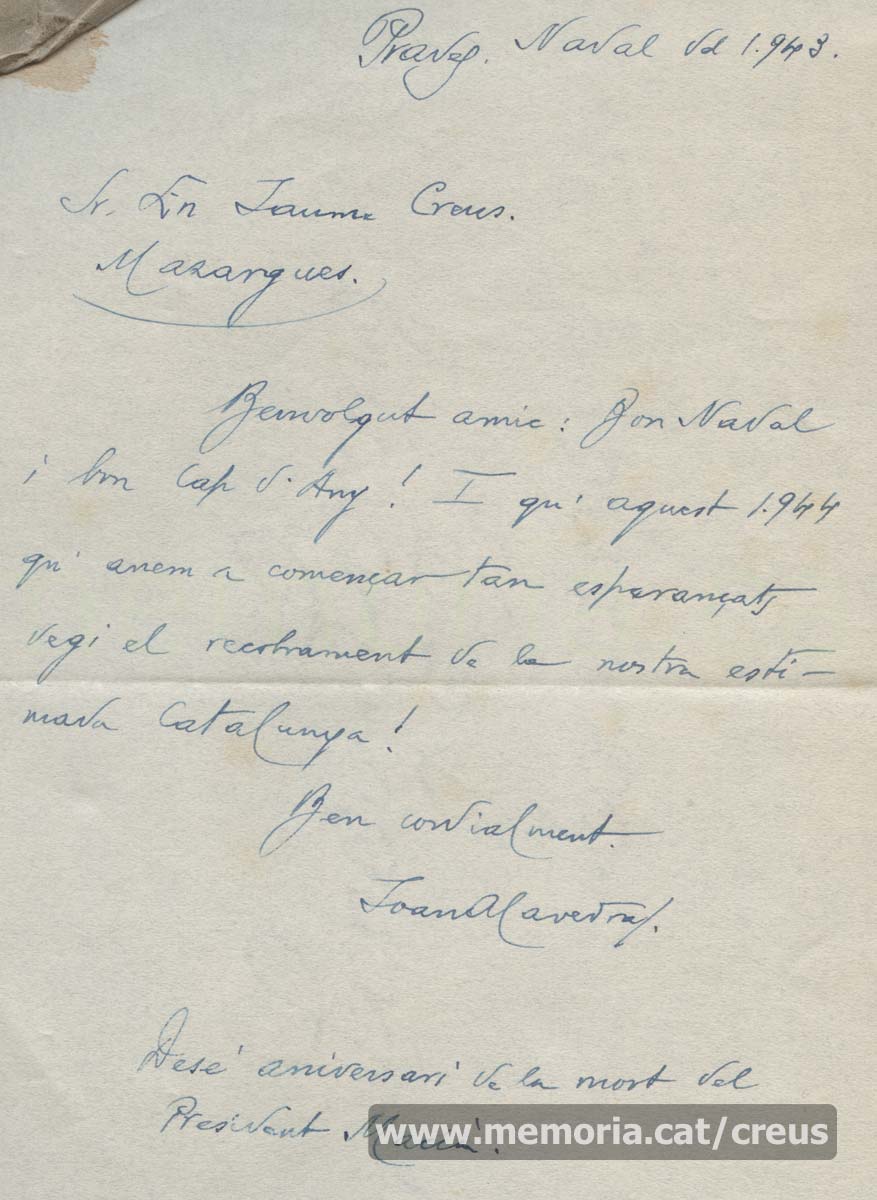 Prades. Nadal del 1.943.
Sr. En Jaume Creus.
Mazargues.
Benvolgut amic: Bon Nadal
i bon Cap d'Any! I qu' aquest 1.944
qu' anem a començar tan esperançats
vegi el recobrament de la nostra esti-
mada Catalunya!
Ben cordialment.
Joan Alavedra.
Desè aniversari de la mort del
President Macià.
www.memoria.cat/creus